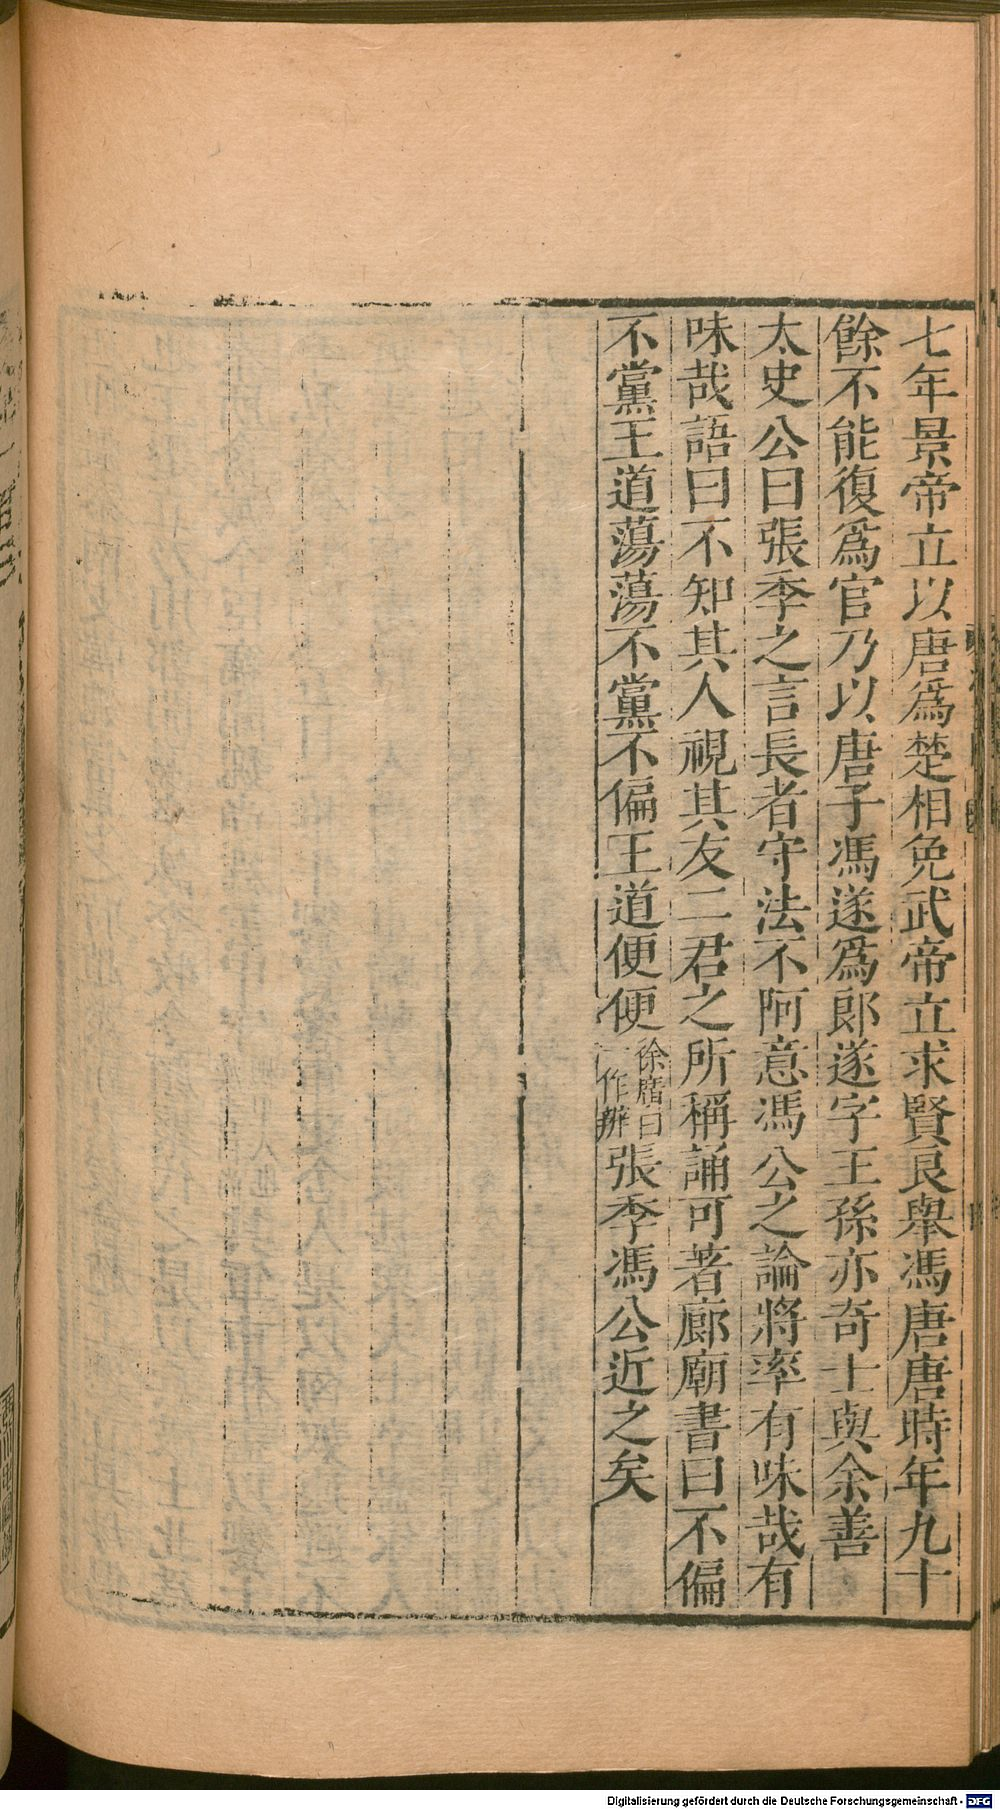 七年景帝立以唐爲楚相免武帝立求賢良舉馮唐唐時年九十
餘不能復爲官乃以唐子馮遂爲郎遂字王孫亦奇士與余善
太史公曰張季之言長者守法不阿意馮公之論將率有味哉有
味哉語曰不知其人視其友二君之所稱誦可著廊廟書曰不偏
不黨王道蕩蕩不黨不偏王道便便徐廣曰一作辨張季馮公近之矣
Digitalisierung gefördert durch die Deutsche Forschungsgemeinschaft - DFG